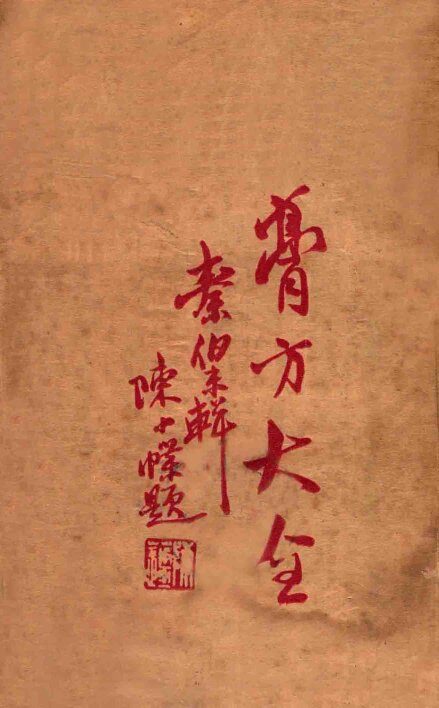 膏方大全
秦伯未輯
陳小蝶題